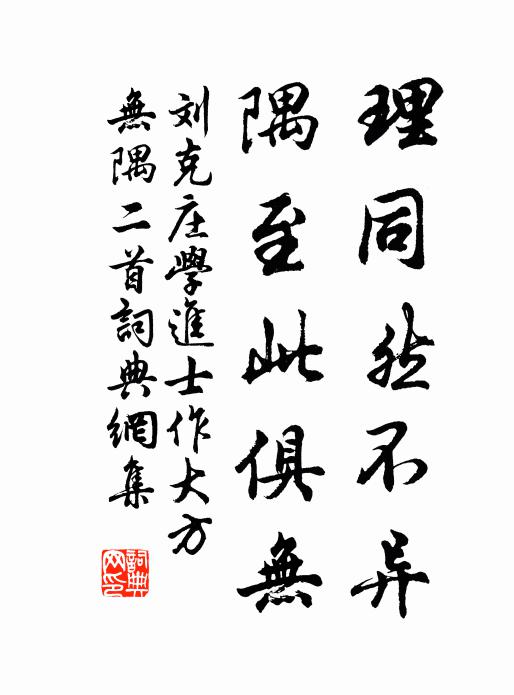 理同然不异
隅至此俱無
刘克庄學進士作大方
無隅二首詞典網集
詞典網印